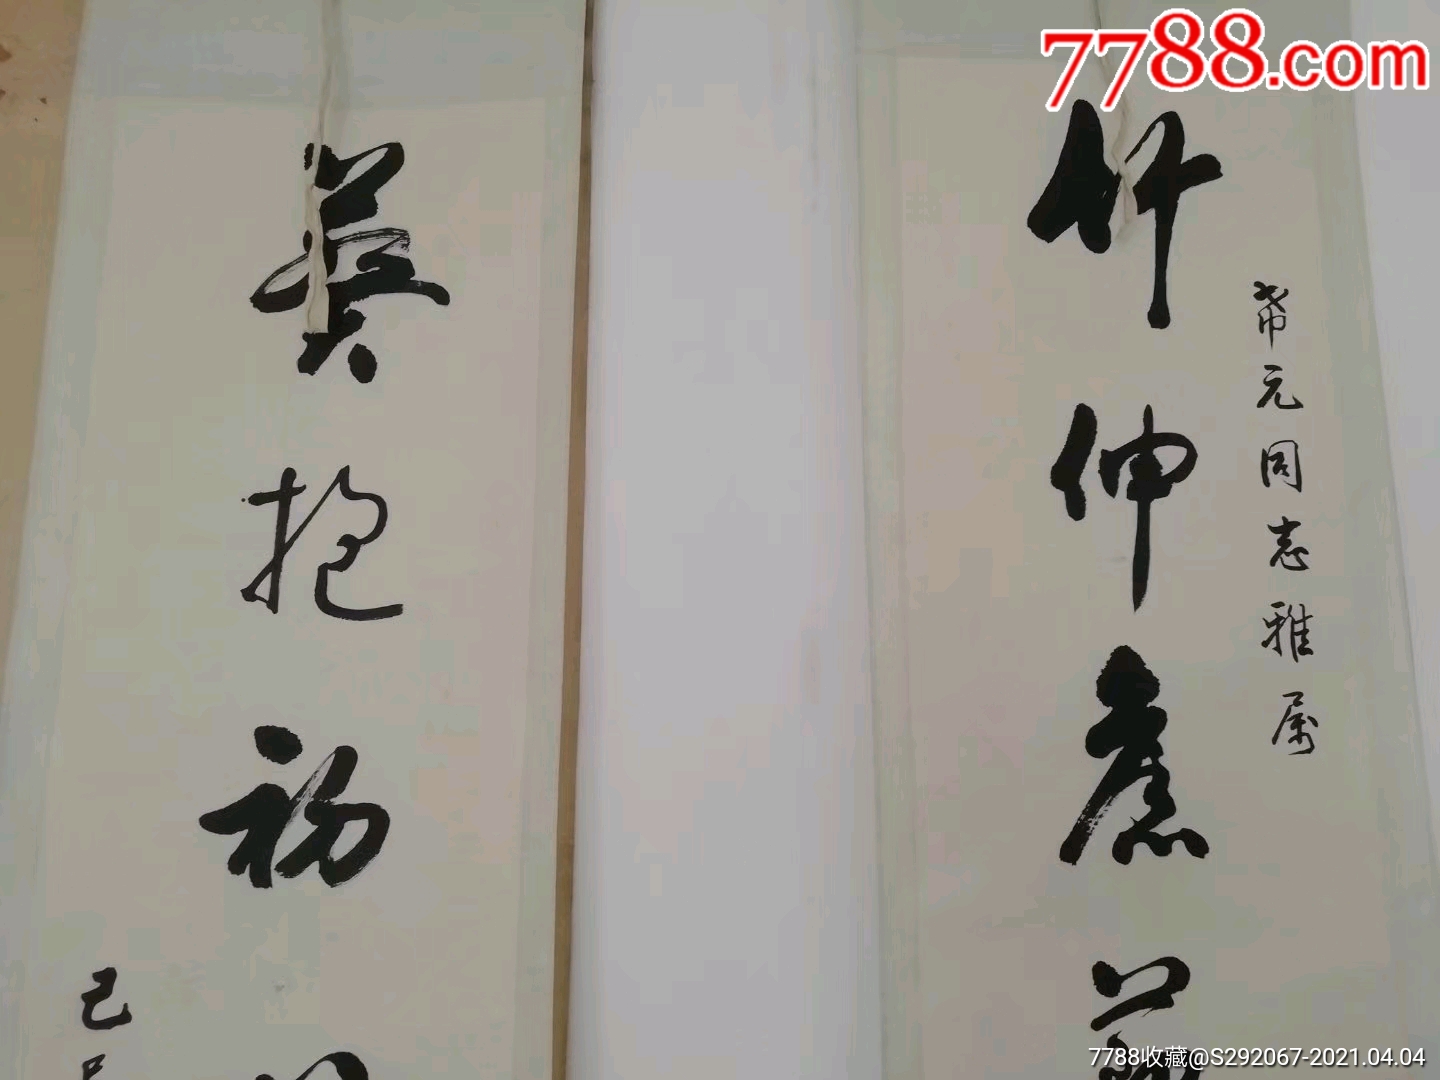 7788.com
希元同志雅属
竹伸
抱初
己
7788收藏@S292067-2021.04.04